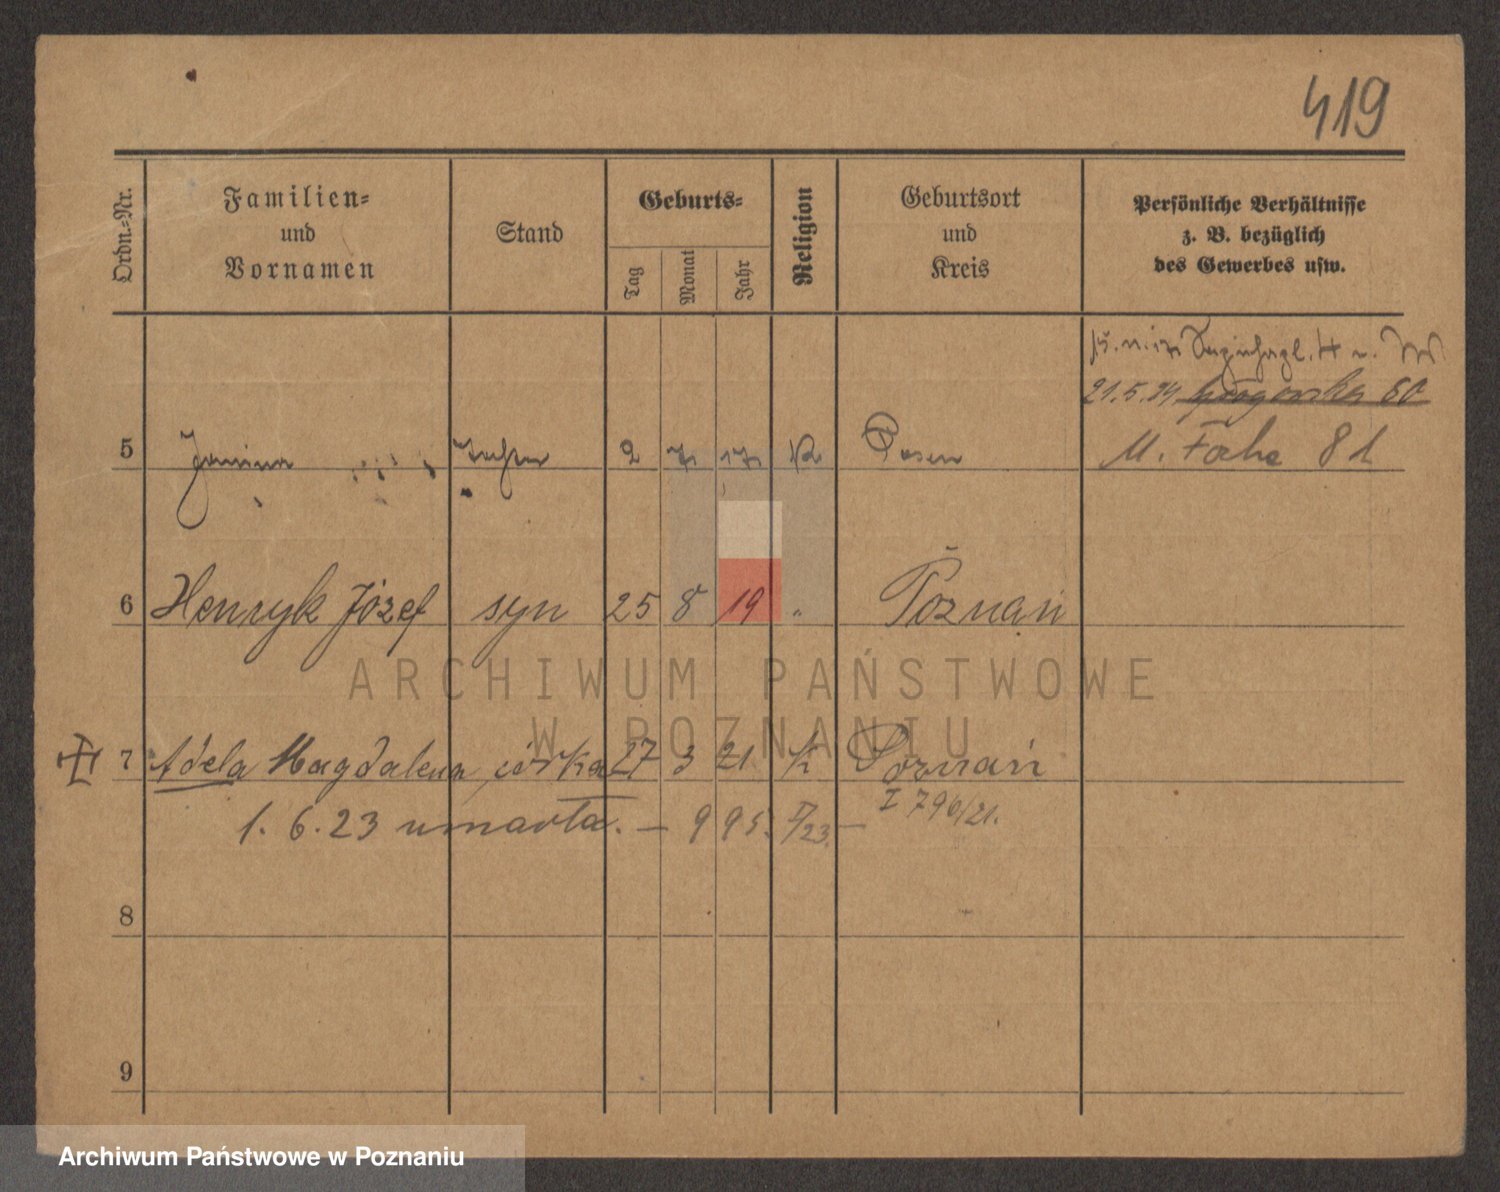 419
Ordn.-Nr.
Familien-
und
Vornamen
Stand
Geburts-
Tag
Monat
Jahr
Religion
Geburtsort
und
Kreis
Persönliche Verhältnisse
z. B. bezüglich
des Gewerbes usw.
21.5.24. Głogowska 80
M. Focha 81
5 Janina Tochter 2 7 17 K Posen
6 Henryk Józef syn 25 8 19 " Poznań
7 Adela Magdalena córka 27 3 21 K Poznań
I 796/21.
1. 6. 23 umarła. — 995. I/23. —
8
9
ARCHIWUM PAŃSTWOWE
W POZNANIU
Archiwum Państwowe w Poznaniu